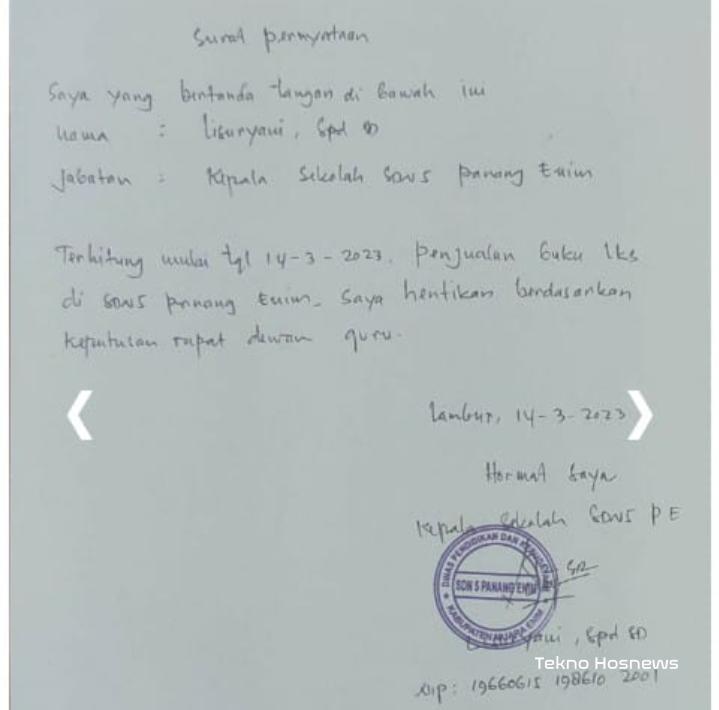 Surat pernyataan
Saya yang bertanda tangan di bawah ini
Nama : Lisuryani, Spd SD
Jabatan : Kepala Sekolah SDN 5 Panang Enim
Terhitung mulai tgl 14-3-2023. Penjualan buku lks
di SDN 5 Panang Enim. Saya hentikan berdasarkan
keputusan rapat dewan guru.
Lambur, 14-3-2023
Hormat Saya
Kepala Sekolah SDN 5 P E
DINAS PENDIDIKAN DAN KEBUDAYAAN
SDN 5 PANANG ENIM
KABUPATEN MUARA ENIM
Lisuryani, Spd SD
Tekno Hosnews
Nip : 19660615 198610 2001